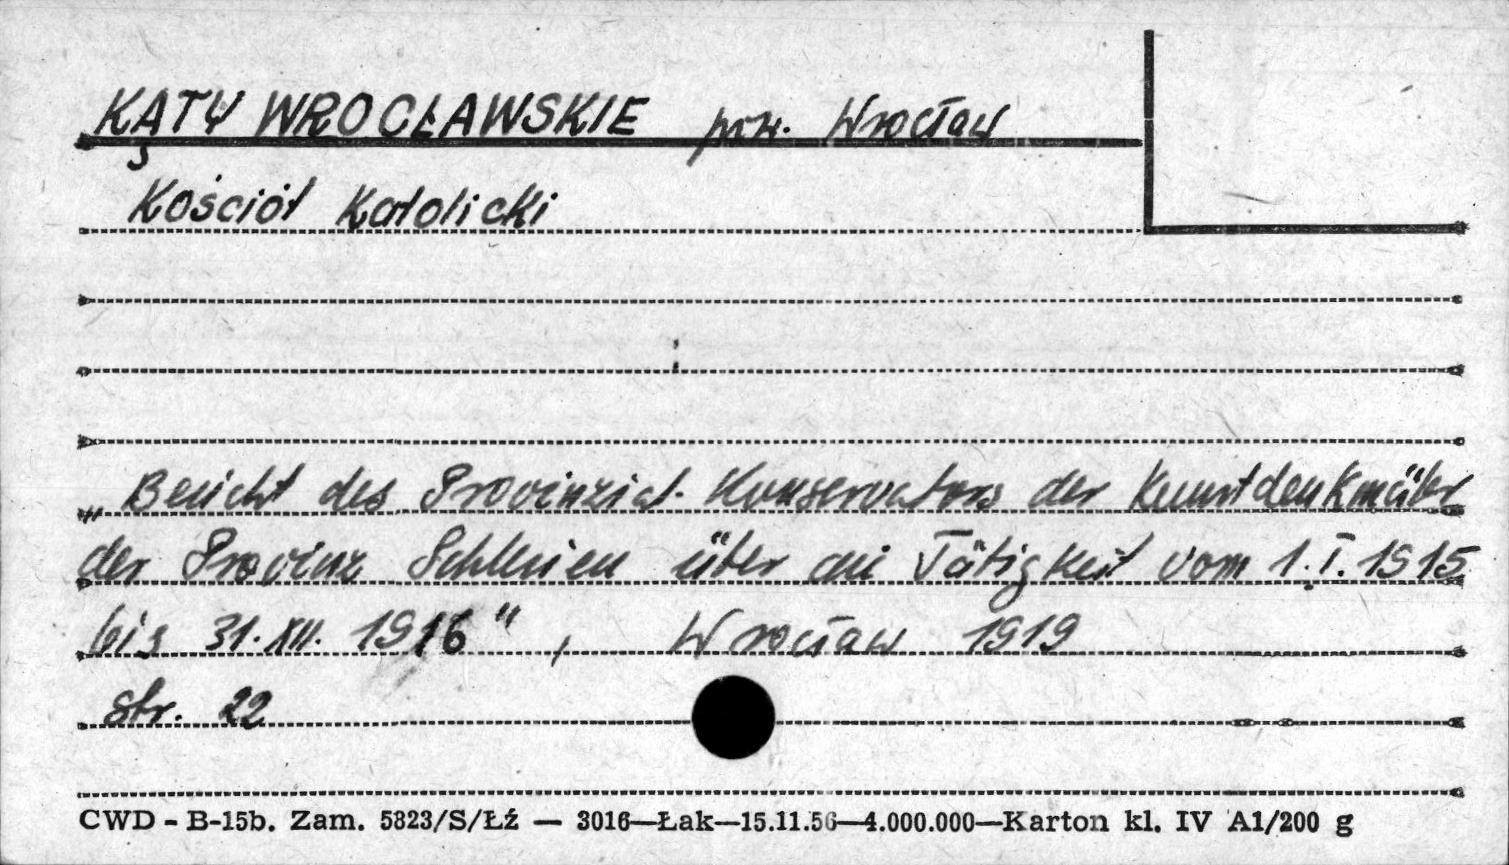 KĄTY WROCŁAWSKIE pow. Wrocław
Kościół Katolicki
„Bericht des Provinzial-Konservators der Kunstdenkmäler
der Provinz Schlesien über die Tätigkeit vom 1.I.1915
bis 31.XII.1916", Wrocław 1919
str. 22
CWD - B-15b. Zam. 5823/S/Łź — 3016—Łak—15.11.56—4.000.000—Karton kl. IV A1/200 g